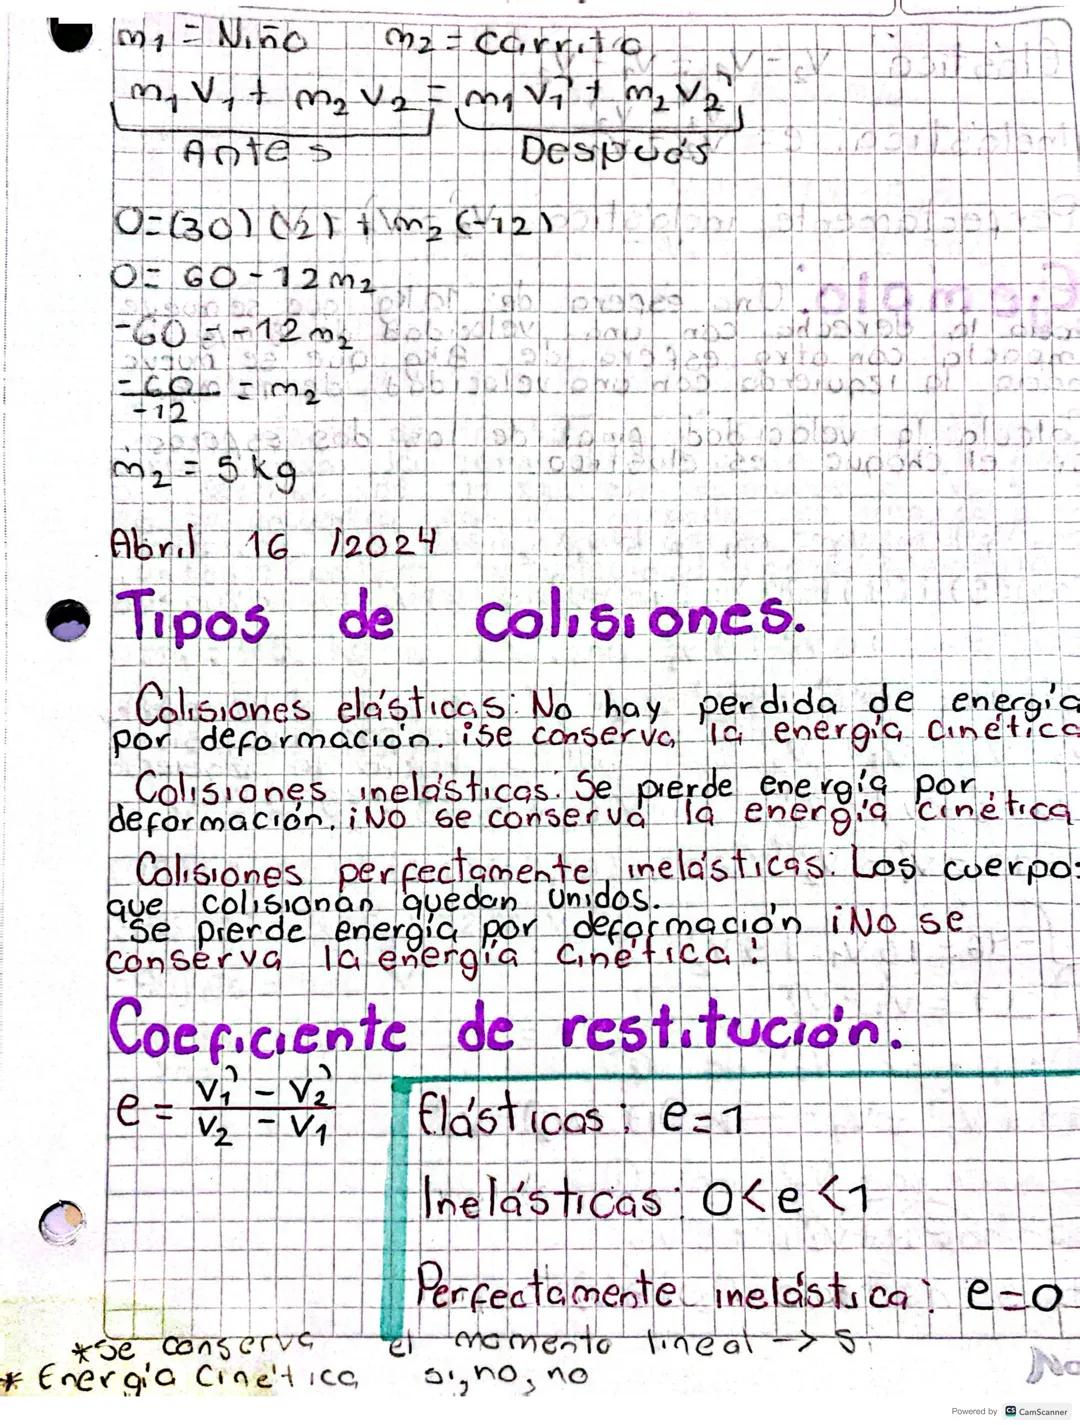 m₁ = Niño m₂ = carrito
m₁ V₁ + m₂ V₂ = m₁ V₁' + m₂ V₂'
Antes Después
0=(30)(2) + m₂ (-12)
0= 60-12m₂
-60 = -12m₂
-60/-12 = m₂
m₂ = 5 kg
Abril 16 /2024
Tipos de colisiones.
Colisiones elásticas: No hay perdida de energía
por deformación. ¡Se conserva la energía cinética
Colisiones inelásticas: Se pierde energía por
deformación. ¡No se conserva la energía cinética
Colisiones perfectamente inelásticas: Los cuerpos
que colisionan quedan unidos.
Se pierde energía por deformación ¡No se
conserva la energía cinética!
Coeficiente de restitución.
e = (V₁' - V₂')/(V₂ - V₁)
Elásticos: e=1
Inelásticas: 0<e<1
Perfectamente inelástica: e=0
*Se conserva el momento lineal -> Si
* Energía Cinética si, no, no
Powered by CS CamScanner